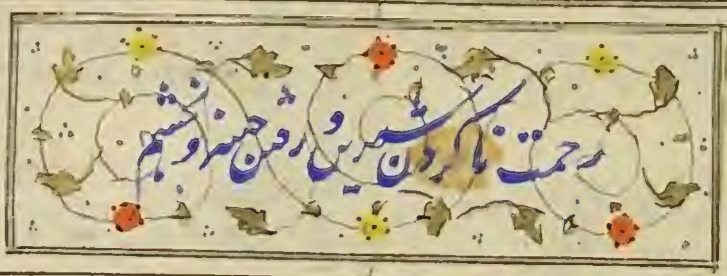 رحمت نا کردن شیرین و رفتن خسرو بخشم